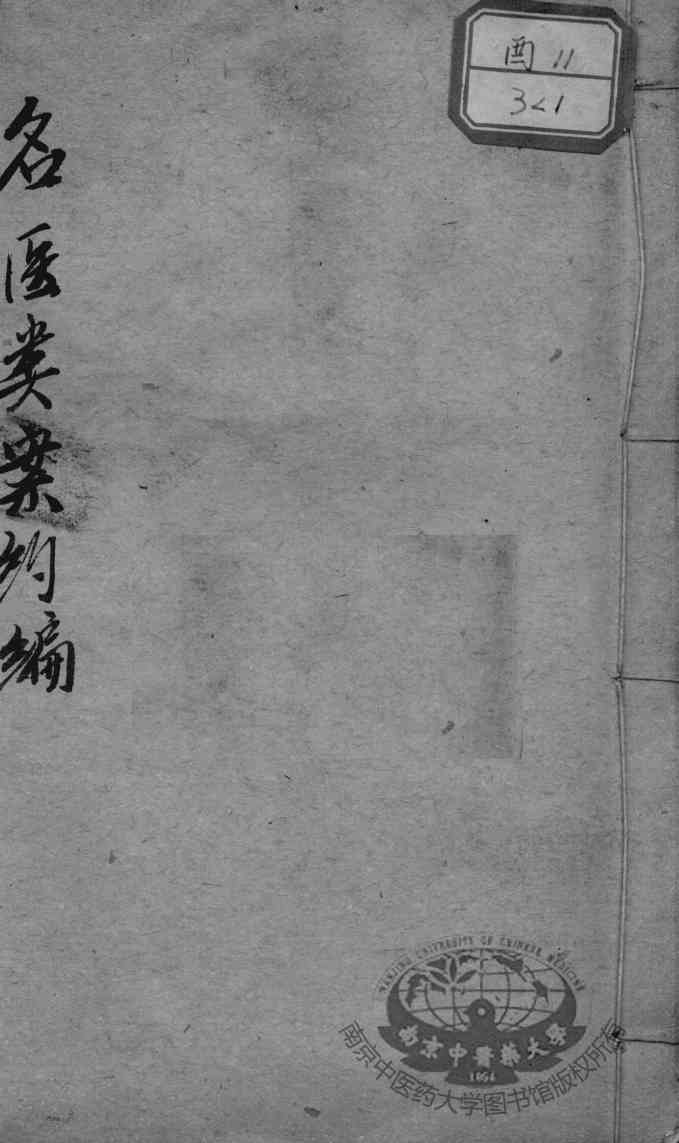 酉 11
321
名医类案约编
NANJING UNIVERSITY OF CHINESE MEDICINE
南京中醫藥大學
1954
南京中医药大学图书馆版权所有